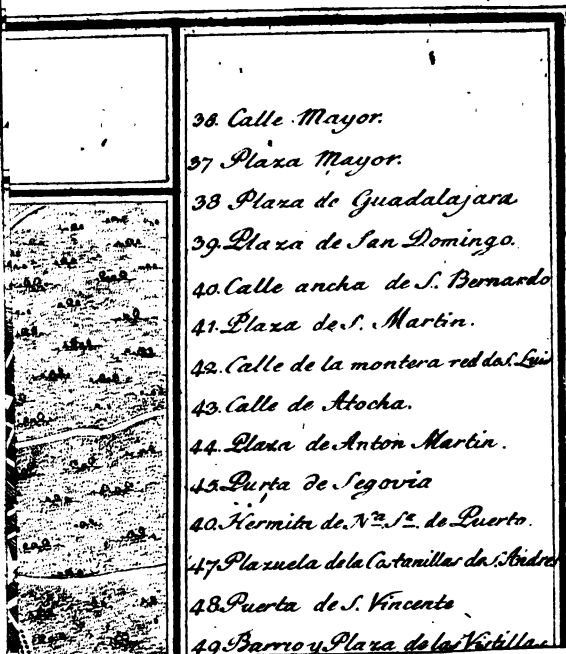 36. Calle Mayor.
37 Plaza Mayor.
38 Plaza de Guadalajara
39. Plaza de San Domingo.
40. Calle ancha de S. Bernardo
41. Plaza de S. Martin.
42. Calle de la montera red de S. Luis
43. Calle de Atocha.
44. Plaza de Anton Martin.
45. Purta de Segovia
40. Hermita de Nª Sª de Puerto.
47 Plazuela dela Costanillas de S. Andres
48. Puerta de S. Vincente
49 Barrio y Plaza de las Vistillas